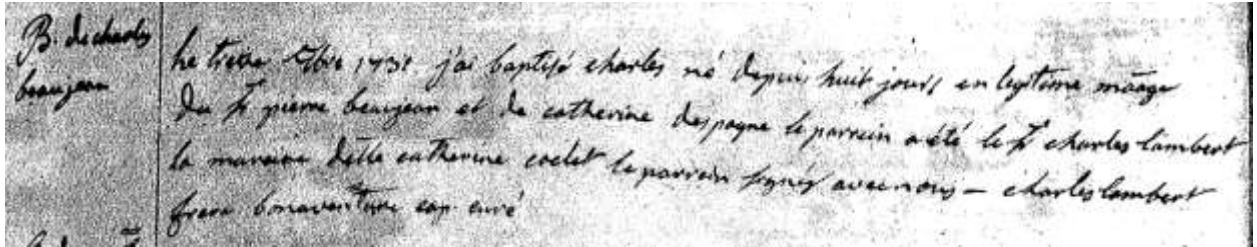 B. de charles
beaujean
Le treize 7bre 1731 j'ai baptisé charles né depuis huit jours en legitime mãage
du Sr pierre beaujean et de catherine despagne le parrein a été le Sr charles lambert
la maraine delle catherine coclet le parrein signé avec nous – charles lambert
frere bonaventure cap. curé